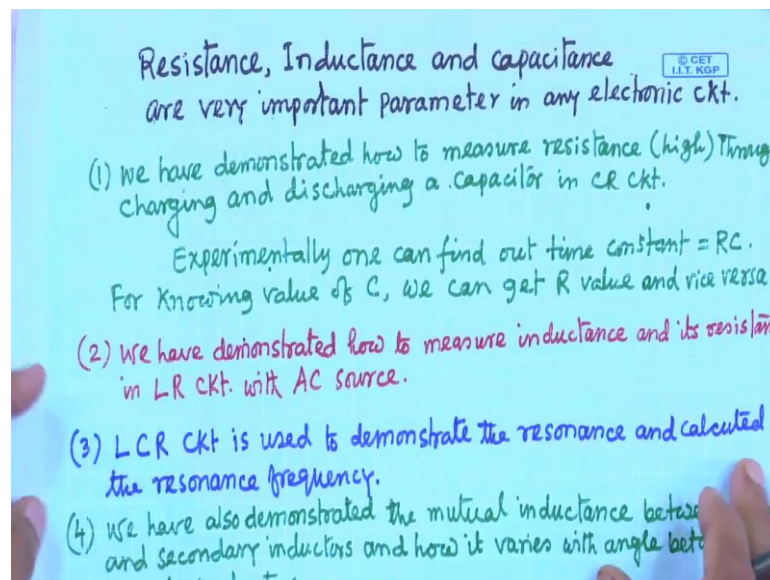 Resistance, Inductance and capacitance
© CET
I.I.T. KGP
are very important parameter in any electronic ckt.
(1) we have demonstrated how to measure resistance (high) Throug
charging and discharging a capacitor in CR ckt.
Experimentally one can find out time constant = RC.
For knowing value of C, we can get R value and vice versa
(2) we have demonstrated how to measure inductance and its resistan
in LR ckt. with AC source.
(3) LCR ckt is used to demonstrate the resonance and calcuted
the resonance frequency.
(4) we have also demonstrated the mutual inductance betwe
and secondary inductors and how it varies with angle bet